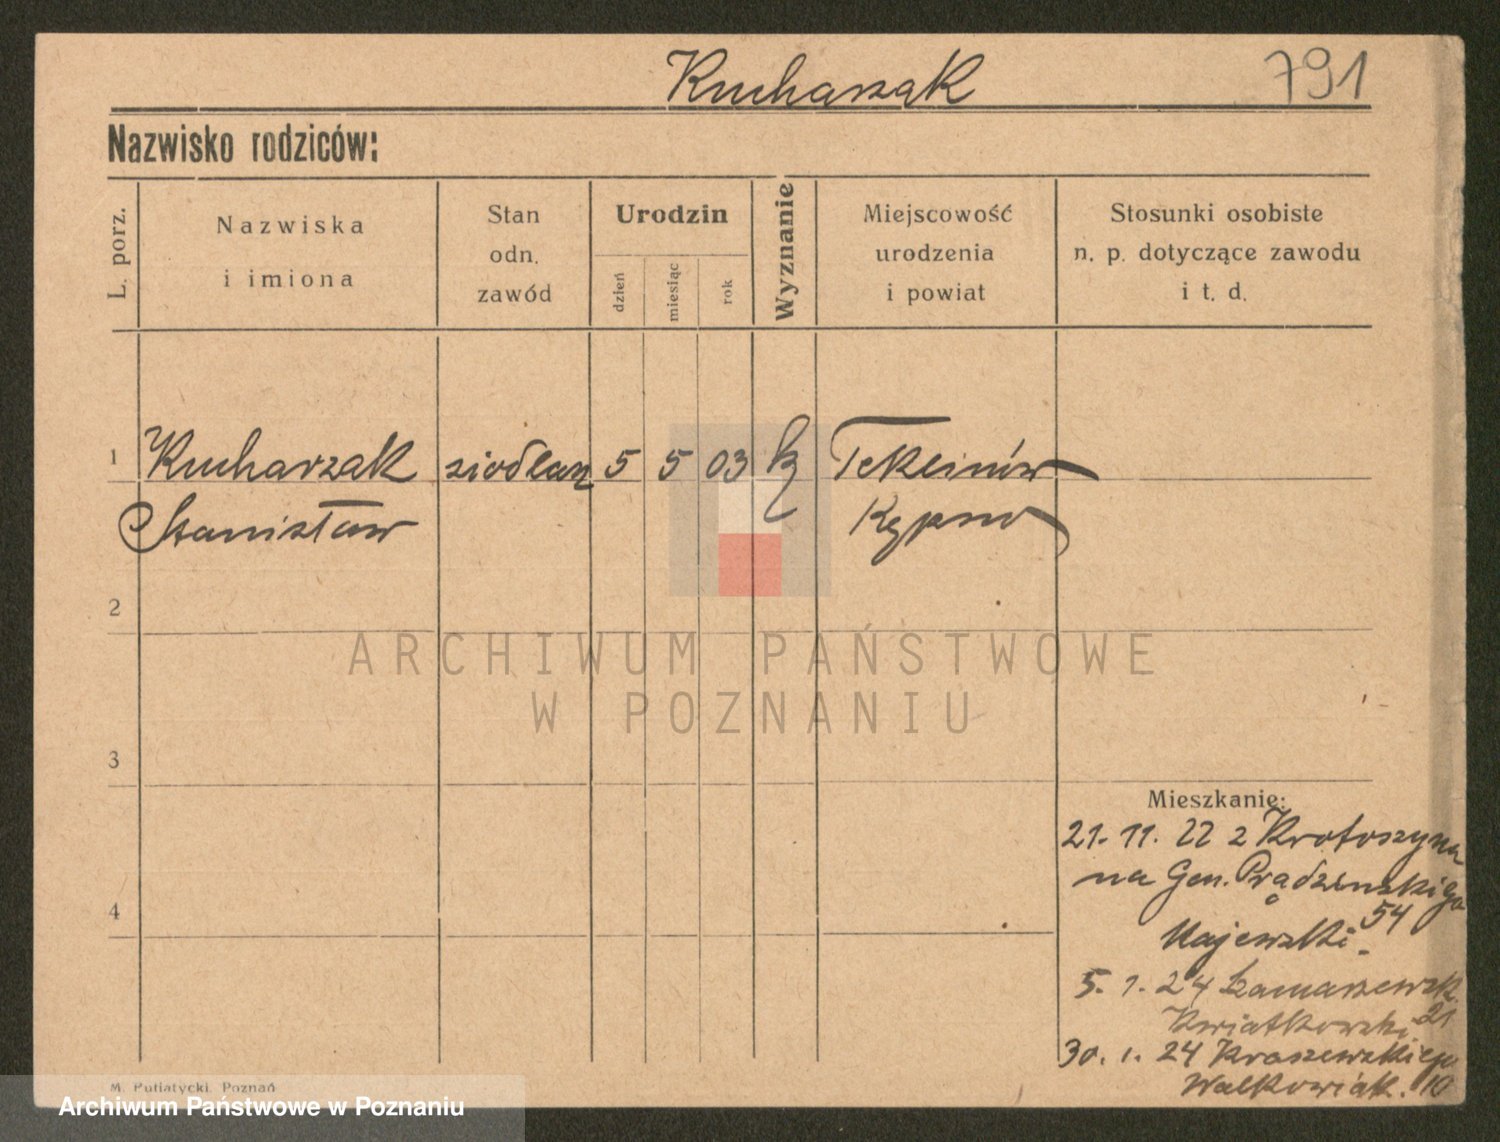 Kucharzak
791
Nazwisko rodziców:
L. porz.
Nazwiska
i imiona
Stan
odn.
zawód
Urodzin
dzień
miesiąc
rok
Wyznanie
Miejscowość
urodzenia
i powiat
Stosunki osobiste
n. p. dotyczące zawodu
i t. d.
1 Kucharzak siodlarz 5 5 03 k Teklinów
Stanisław Kępno
2
ARCHIWUM PAŃSTWOWE
W POZNANIU
3
Mieszkanie:
21. 11. 22 z Krotoszyna
na Gen. Prądzyńskiego
54
Majewski.
4
5. 1. 24 Łamaszewsk.
Kwiatkowski 21
30. 1. 24 Kraszewskiego
Walkowiak. 10
M. Putiatycki, Poznań
Archiwum Państwowe w Poznaniu